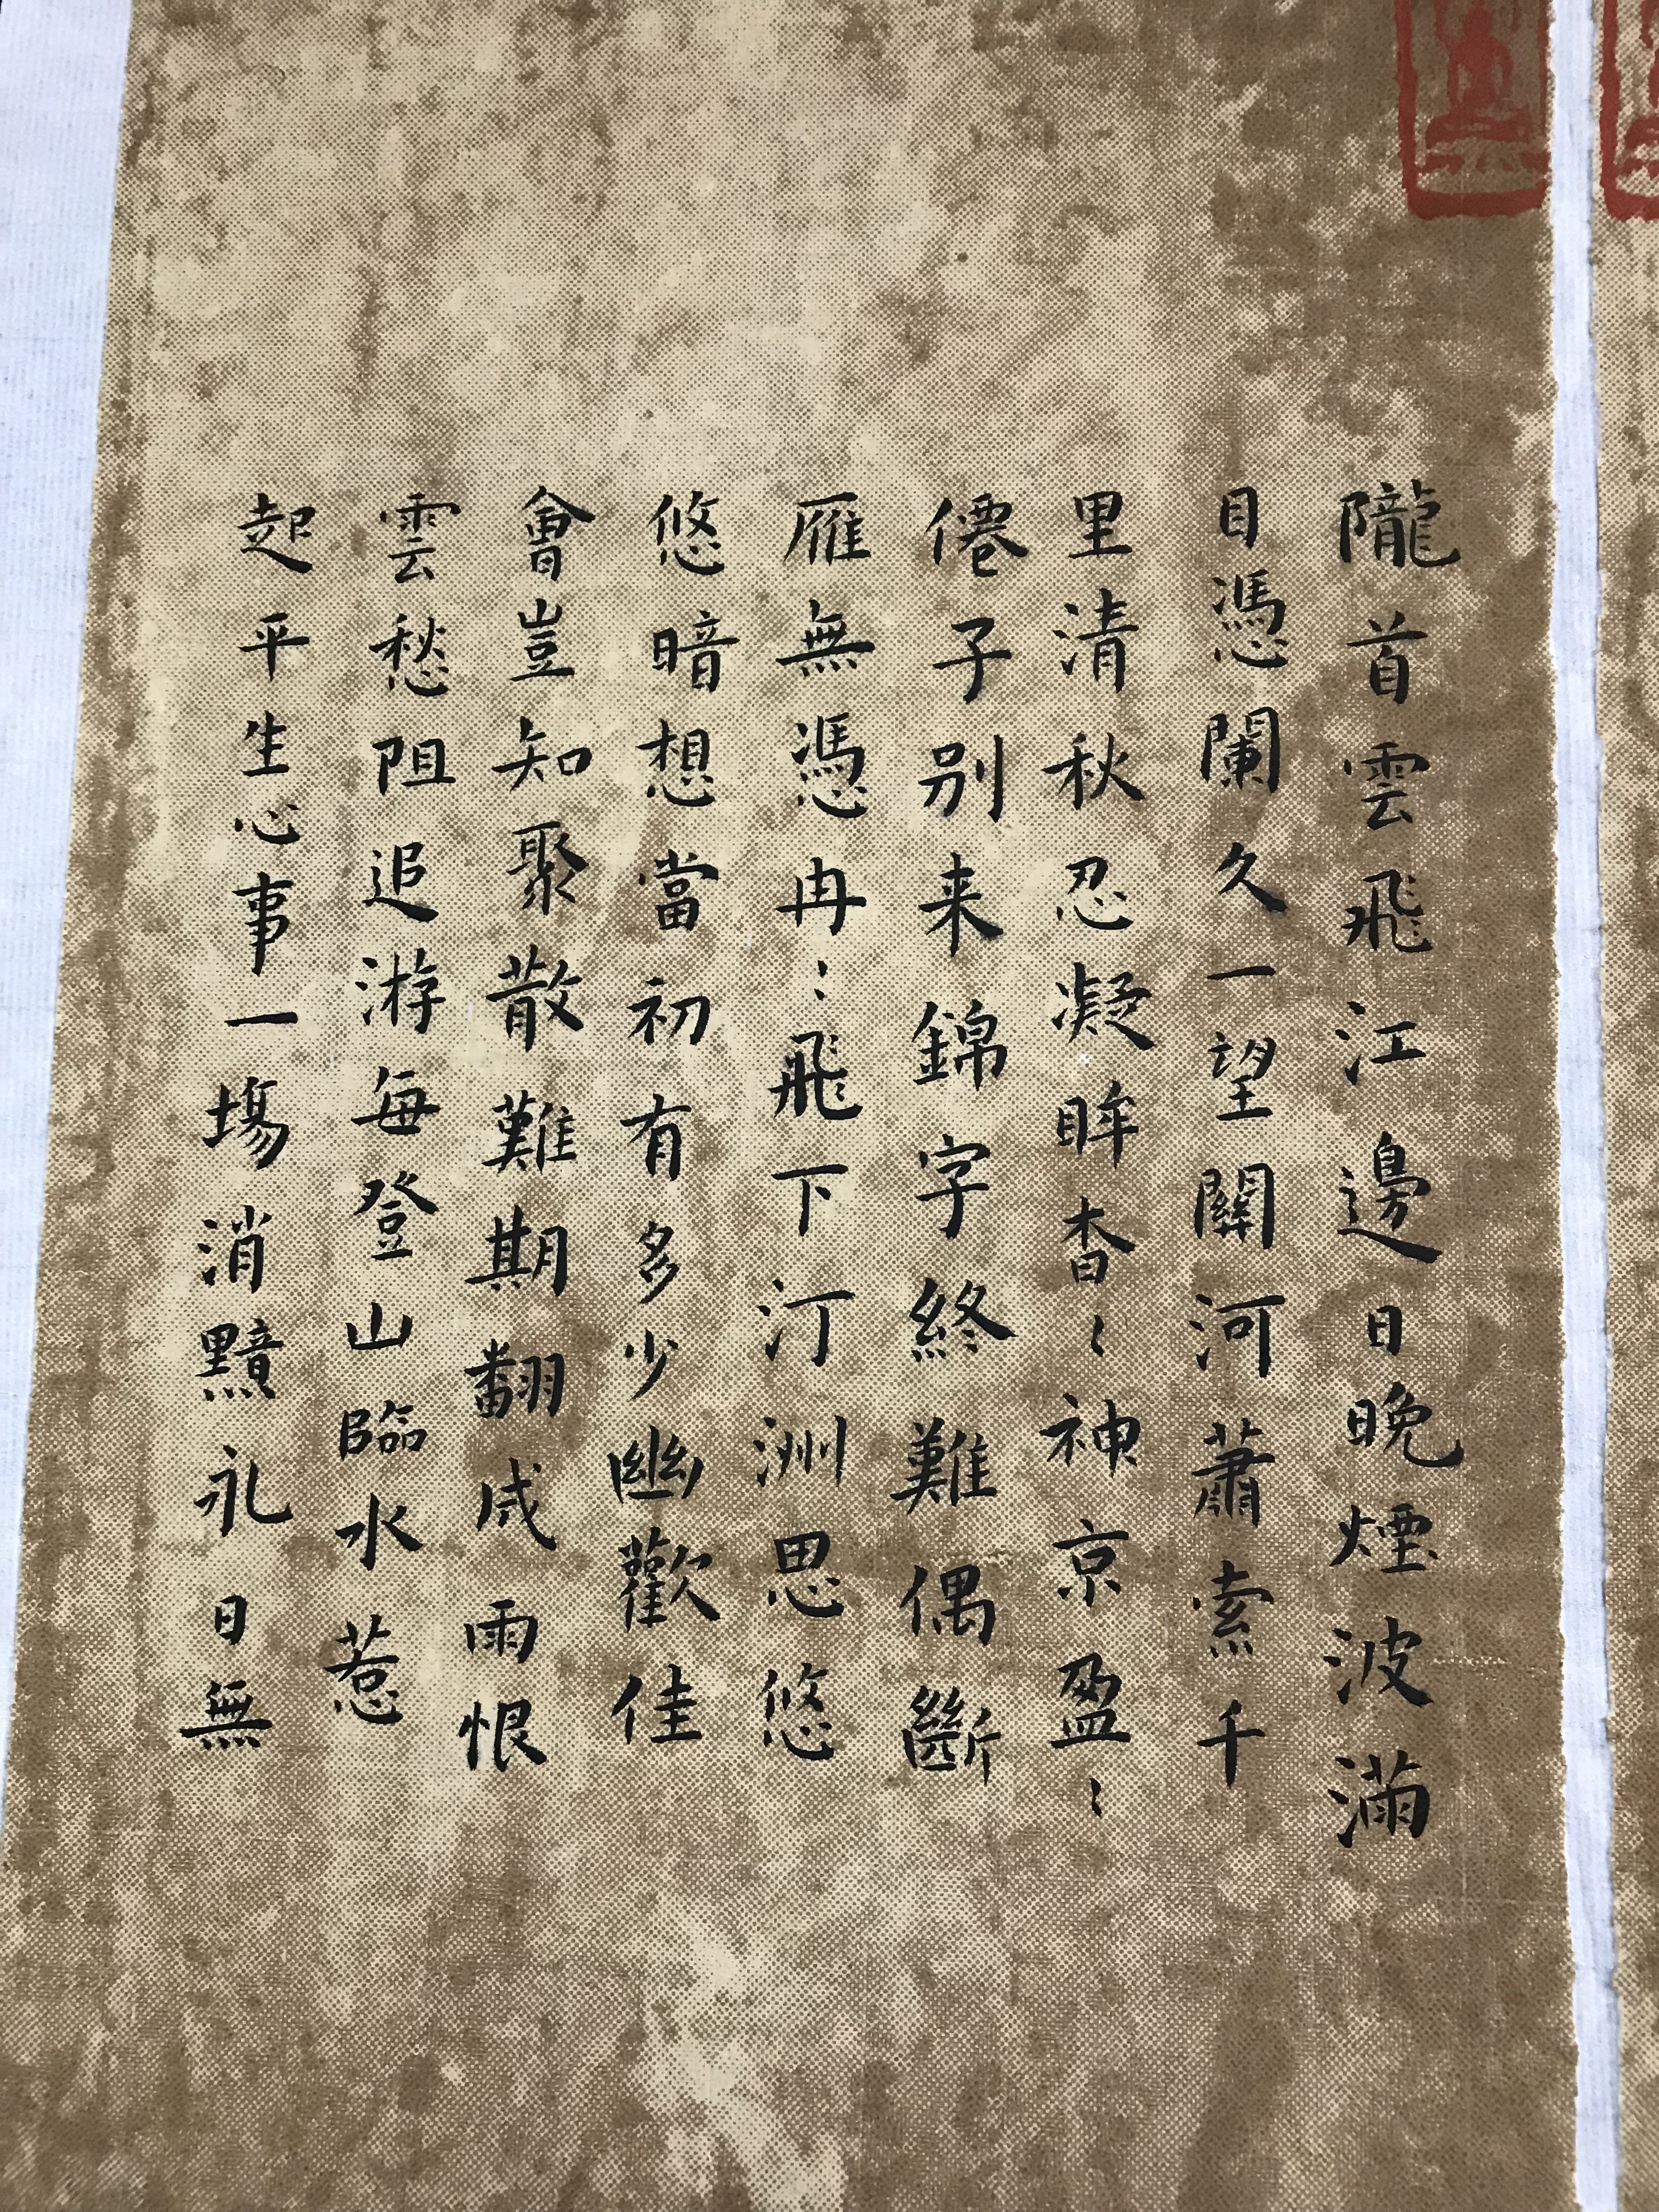 隴首雲飛江邊日晚煙波滿
目憑闌久一望關河蕭索千
里清秋忍凝眸杳〻神京盈〻
僊子別来錦字終難偶斷
雁無憑冉〻飛下汀洲思悠
悠暗想當初有多少幽歡佳
會豈知聚散難期翻成雨恨
雲愁阻追游每登山臨水惹
起平生心事一場消黯永日無